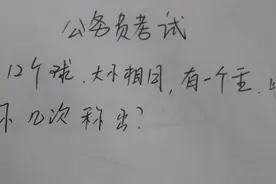 公务员考试
12个球.大小相同,有一个重.
几次称出?